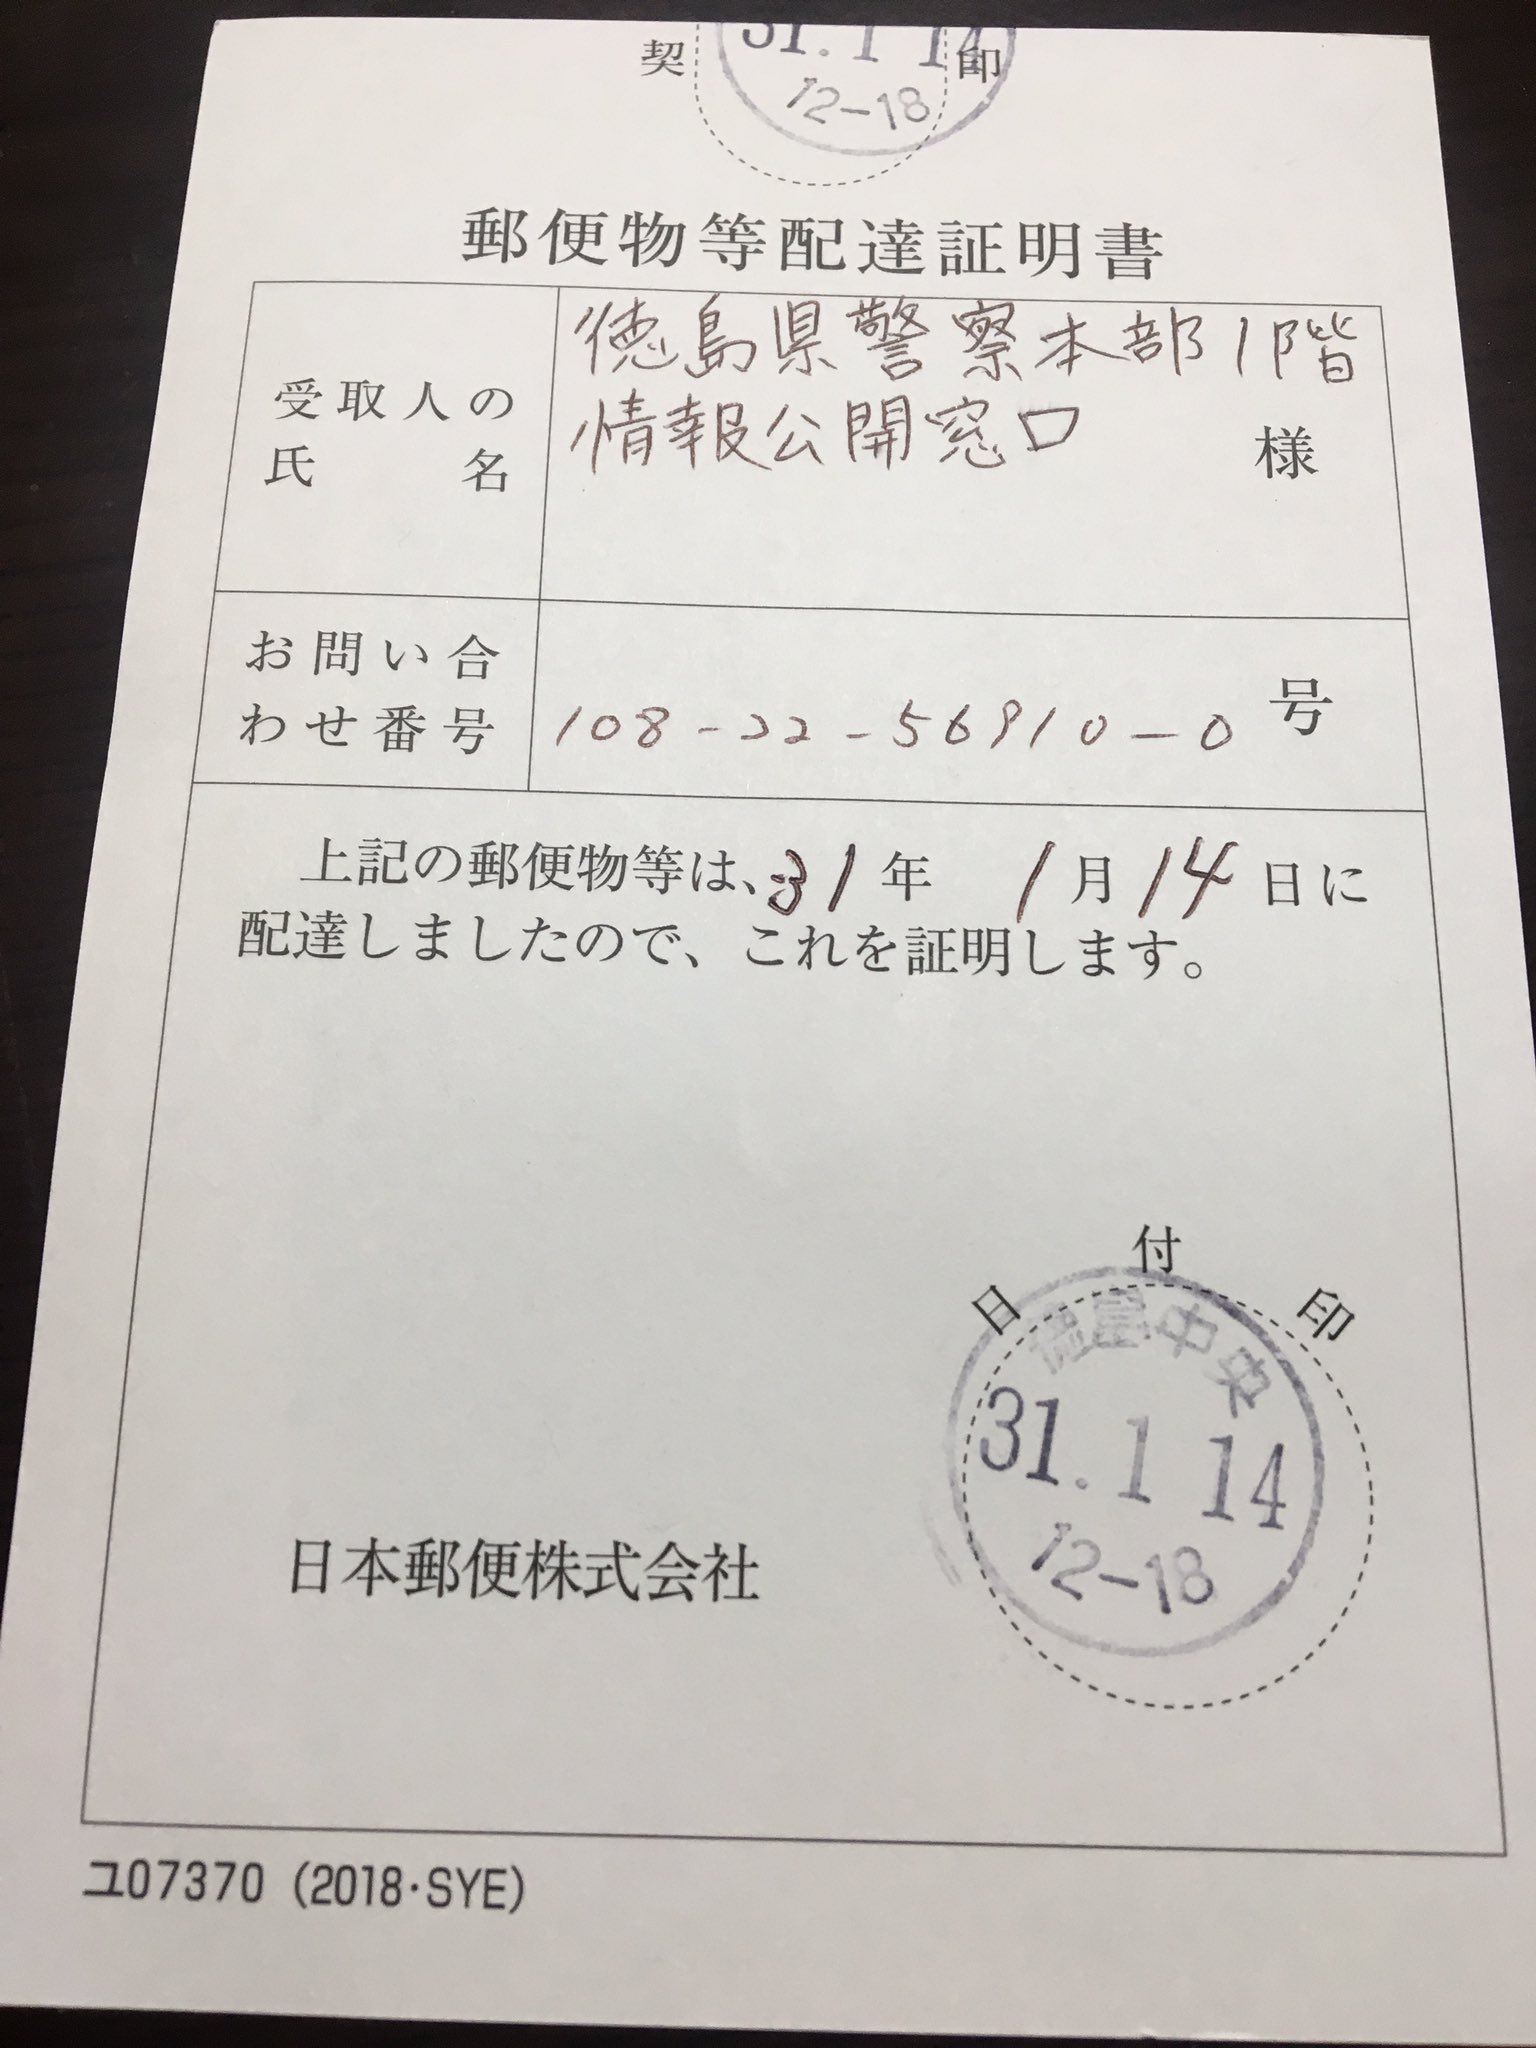 31.1 14
契 印
12-18
郵便物等配達証明書
受取人の
氏名
徳島県警察本部1階
情報公開窓口
様
お問い合
わせ番号
108-22-56910-0 号
上記の郵便物等は、31年 1月14日に
配達しましたので、これを証明します。
日付印
徳島中央
31.1 14
12-18
日本郵便株式会社
ユ07370（2018・SYE）